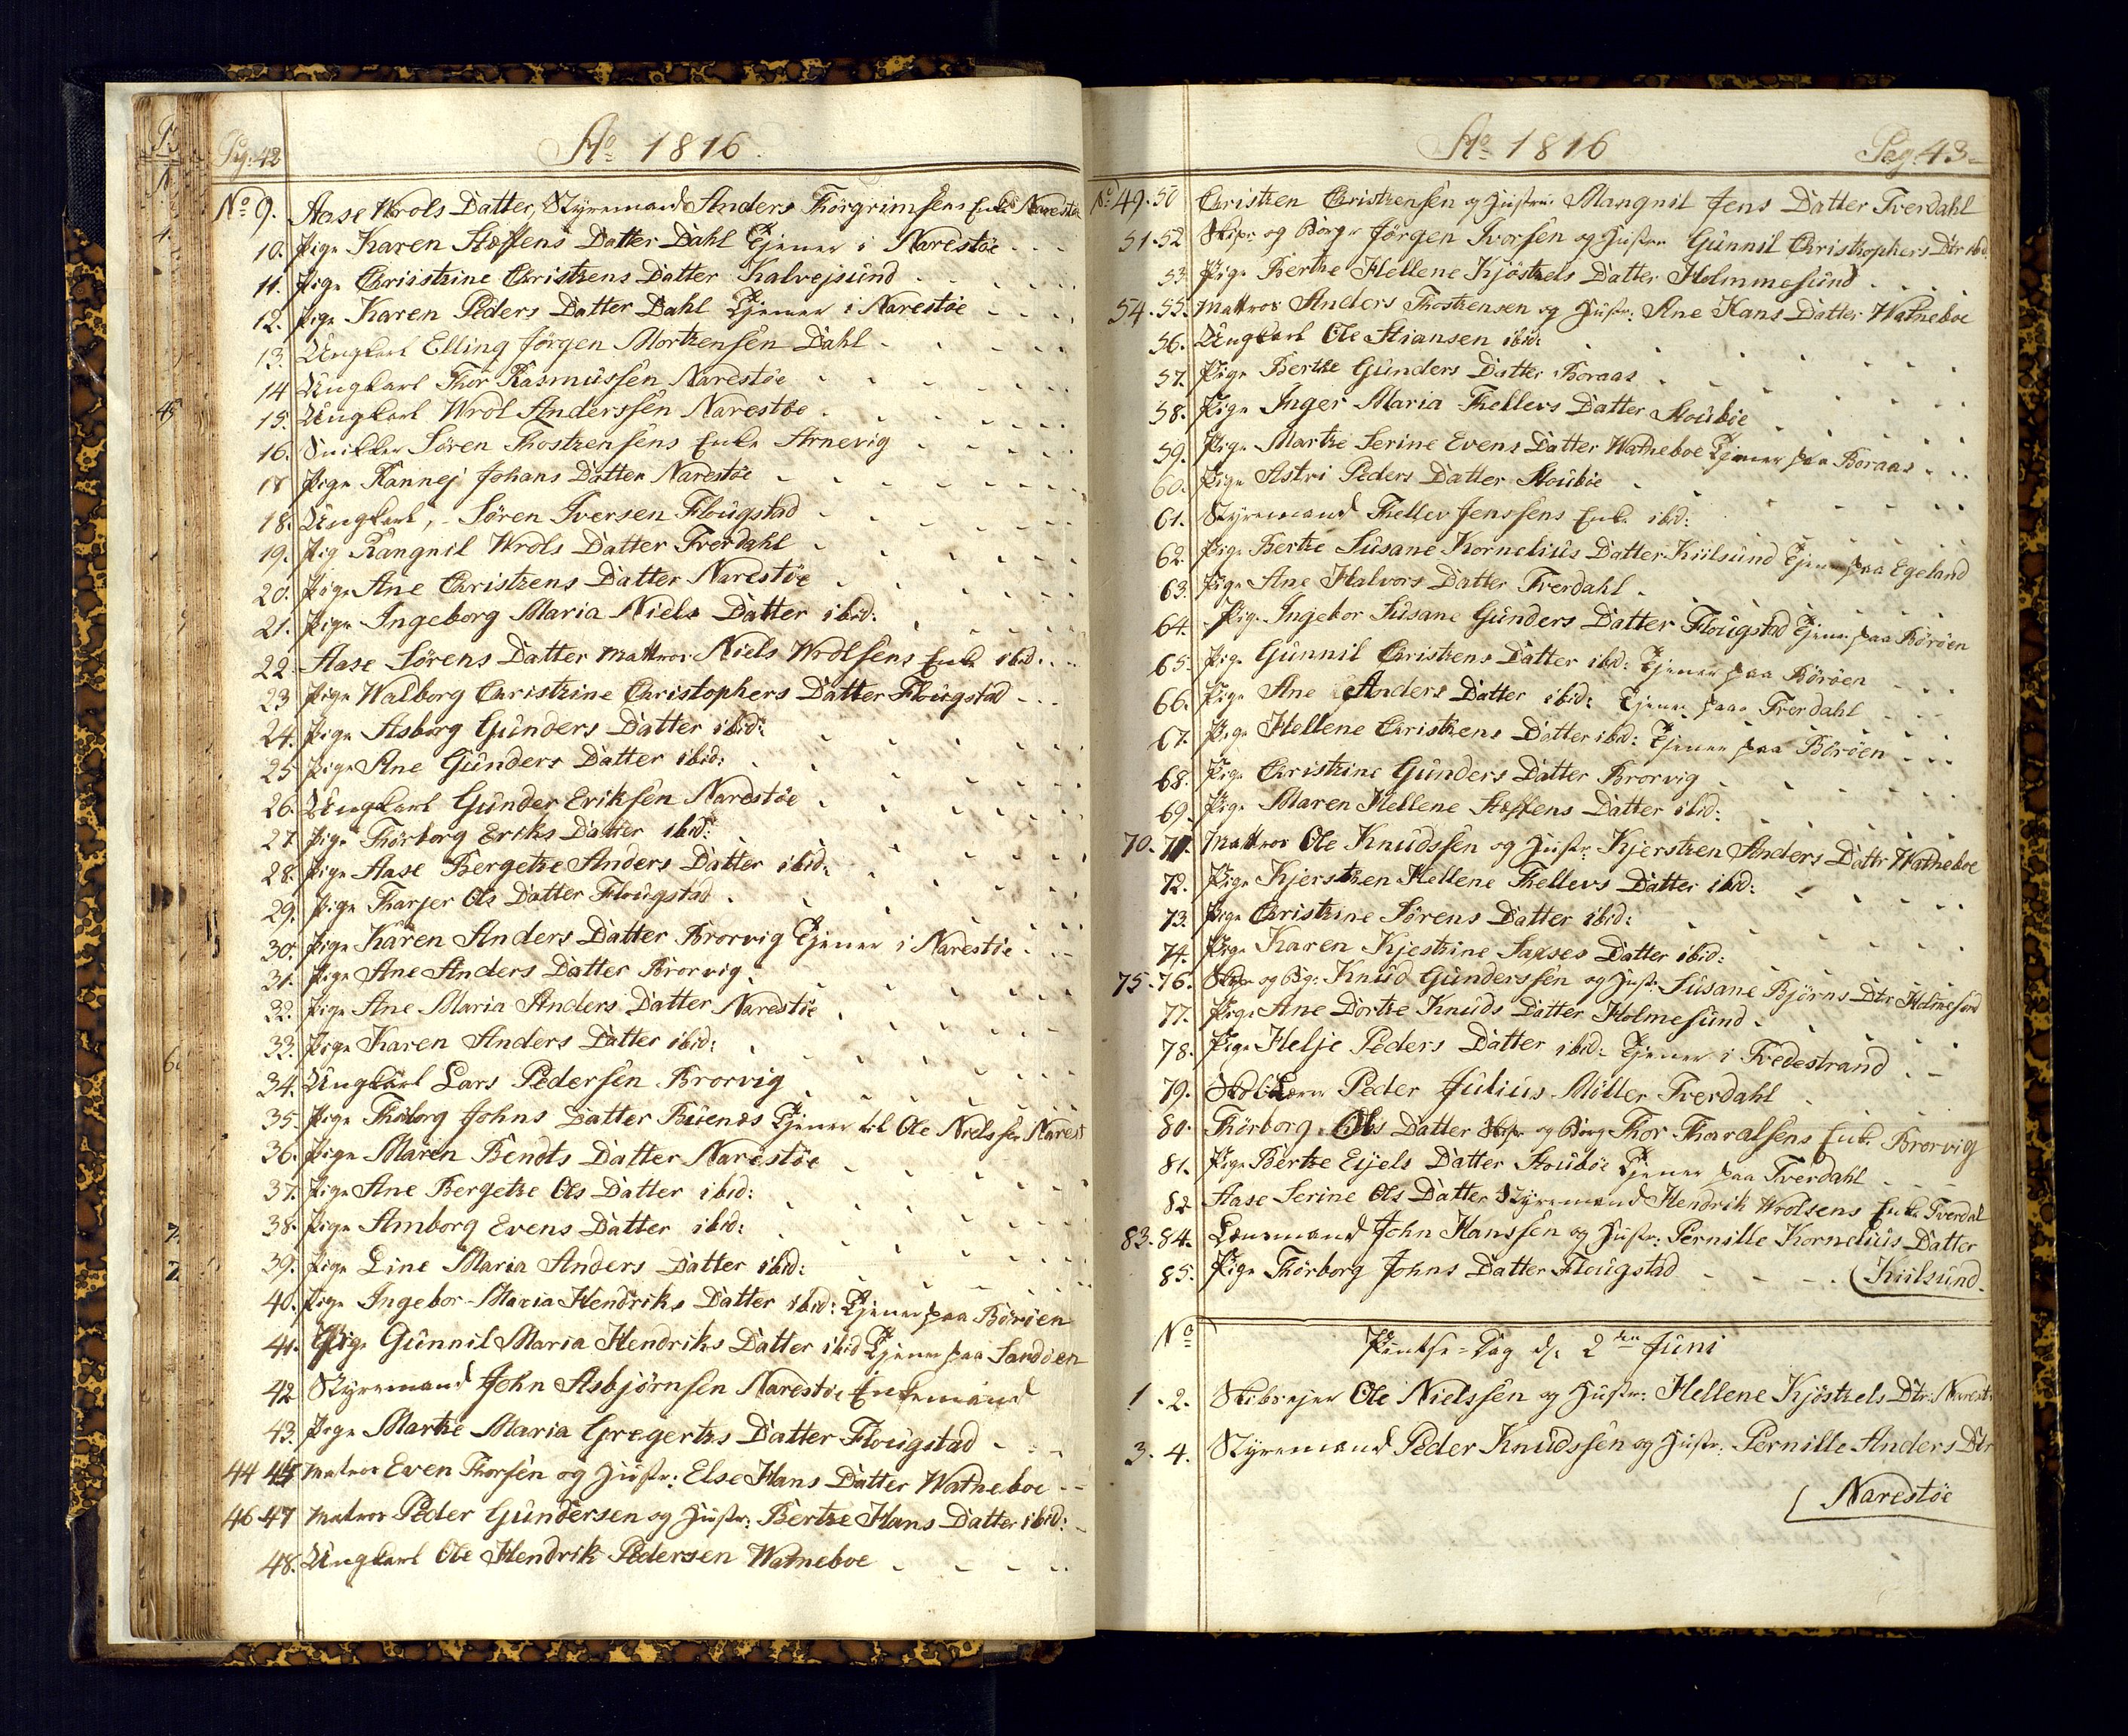 Pag: 42
Ao 1816.
No 9. Aase Wrols Datter, Styremand Anders Thorgrimsens Enke Narestøe
10. Pige Karen Steffens Datter Dahl Tjener i Narestøe
11. Pige Chrisstine Christens Datter Kalvejsund
12. Pige Karen Peders Datter Dahl Tjener i Narestøe
13. Ungkarl Elling Jørgen Mortensen Dahl
14 Ungkarl Thor Rasmussen Narestøe
15. Ungkarl Wrol Anderssen Narestøe
16. Snikker Søren Thostensens Enke Arnevig
17 Pige Rannej Johans Datter Narestøe
18. Ungkarl, Søren Iversen Flougstad
19. Pig Rangnil Wrols Datter Tverdahl
20. Pige Ane Christens Datter Narestøe
21. Pige Ingeborg Maria Niels Datter ibid:
22. Aase Sørens Datter Mattros Niels Wrolsens Enke ibid:
23 Pige Walborg Christine Christophers Datter Flougstad
24. Pige Asborg Gunders Datter ibid:
25 Pige Ane Gunders Datter ibid:
26. Ungkarl Gunder Eriksen Narestøe
27 Pige Thorborg Eriks Datter ibid:
28. Pige Aase Bergete Anders Datter ibid:
29. Pige Tharjer Ols Datter Flougstad
30. Pige Karen Anders Datter Brorvig Tjener i Narestøe
31. Pige Ane Anders Datter Brorvig
32. Pige Ane Maria Anders Datter Narestøe
33. Pige Karen Anders Datter ibid:
34. Ungkarl Lars Pedersen Brorvig
35. Pige Thoborg Johns Datter Buenes Tjener til Ole Nielssen Narest
36. Pige Maren Bendts Datter Narestøe
37. Pige Ane Bergete Ols Datter ibid:
38. Pige Amborg Evens Datter ibid:
39. Pige Line Maria Anders Datter ibid:
40. Pige Ingebor Maria Hendriks Datter ibid: Tjener paa Børøen
41. Pige Gunnil Maria Hendriks Datter ibid Tjener paa Sandøen
42 Styremand John Asbjørnsen Narestøe Enkemand
43. Pige Marte Maria Gregerts Datter Flougstad
44 45 Matros Even Thorsen og Hustr: Else Hans Datter Watneboe
46 47 Matros Peder Gundersen og Hustr: Berte Hans Datter ibid:
48. Ungkarl Ole Hendrik Pedersen Watneboe
Ao 1816
Pag: 43
No 49. 50 Christen Christensen og Hustru: Mangnil Jens Datter Tverdahl
51. 52 Skipr og Borgr Jørgen Ivorsen og Hustru Gunnil Christophers Dtr ibid.
53 Pige Berte Hellene Kjøstels Datter Holmmesund
54. 55. Mattros Anders Thostensen og Hustr: Ane Hans Datter Watneboe
56. Ungkarl Ole Stiansen ibid:
57. Pige Berte Gunders Datter Boraas
58. Pige Inger Maria Thellevs Datter Stoubøe
59. Pige Marte Serine Evens Datter Watneboe Tjener paa Boraas
60. Pige Astri Peders Datter Stoubøe
61. Styremand Thellev Jenssens Enke ibid:
62. Pige Berte Susane Kornelius Datter Kiilsund Tjener paa Egeland
63. Pige Ane Halvors Datter Tverdahl
64. Pige Ingebor Susane Gunders Datter Flougstad Tjener paa Børøen
65. Pige Gunnil Christens Datter ibid: Tjener paa Børøen
66. Pige Ane Anders Datter ibid: Tjener paa Tverdahl
67. Pige Hellene Christens Datter ibid: Tjener paa Børøen
68. Pige Christine Gunders Datter Brorvig
69. Pige Maren Hellene Steffens Datter ibid:
70. 71. Mattros Ole Knudssen og Hustr: Kjersten Anders Dattr Watneboe
72. Pige Kjersten Hellene Thellevs Datter ibid:
73. Pige Christine Sørens Datter ibid:
74. Pige Karen Kjestine Saxses Datter ibid:
75. 76. Skipr og Bg: Knud Gunderssen og Hustr: Susane Bjørns Dtr Holmesund
77. Pige Ane Dorte Knuds Datter Holmesund
78. Pige Helje Peders Datter ibid: Tjener i Tvedestrand
79. Skolelærer Peder Julius Møller Tverdahl
80. Thørborg Ols Datter Skipr og Borg Thor Tharalsens Enke Brorvig
81. Pige Berte Eijels Datter Stoubøe Tjener paa Tverdahl
82 Aase Serine Ols Datter Styremand Hendrik Wrolsens Enke Tverdal
83. 84. Lænsmand John Hanssen og Hustr: Pernille Kornelius Datter
85. Pige Thørborg Johns Datter Flougstad (Kiilsund.
No
Pintse-Dag d. 2den Juni
1. 2. Skibsejer Ole Nielssen og Hustr: Hellene Kjøstels Dtr: Narest
3. 4. Styremand Peder Knudssen og Hustr: Pernille Anders Dtr
(Narestøe